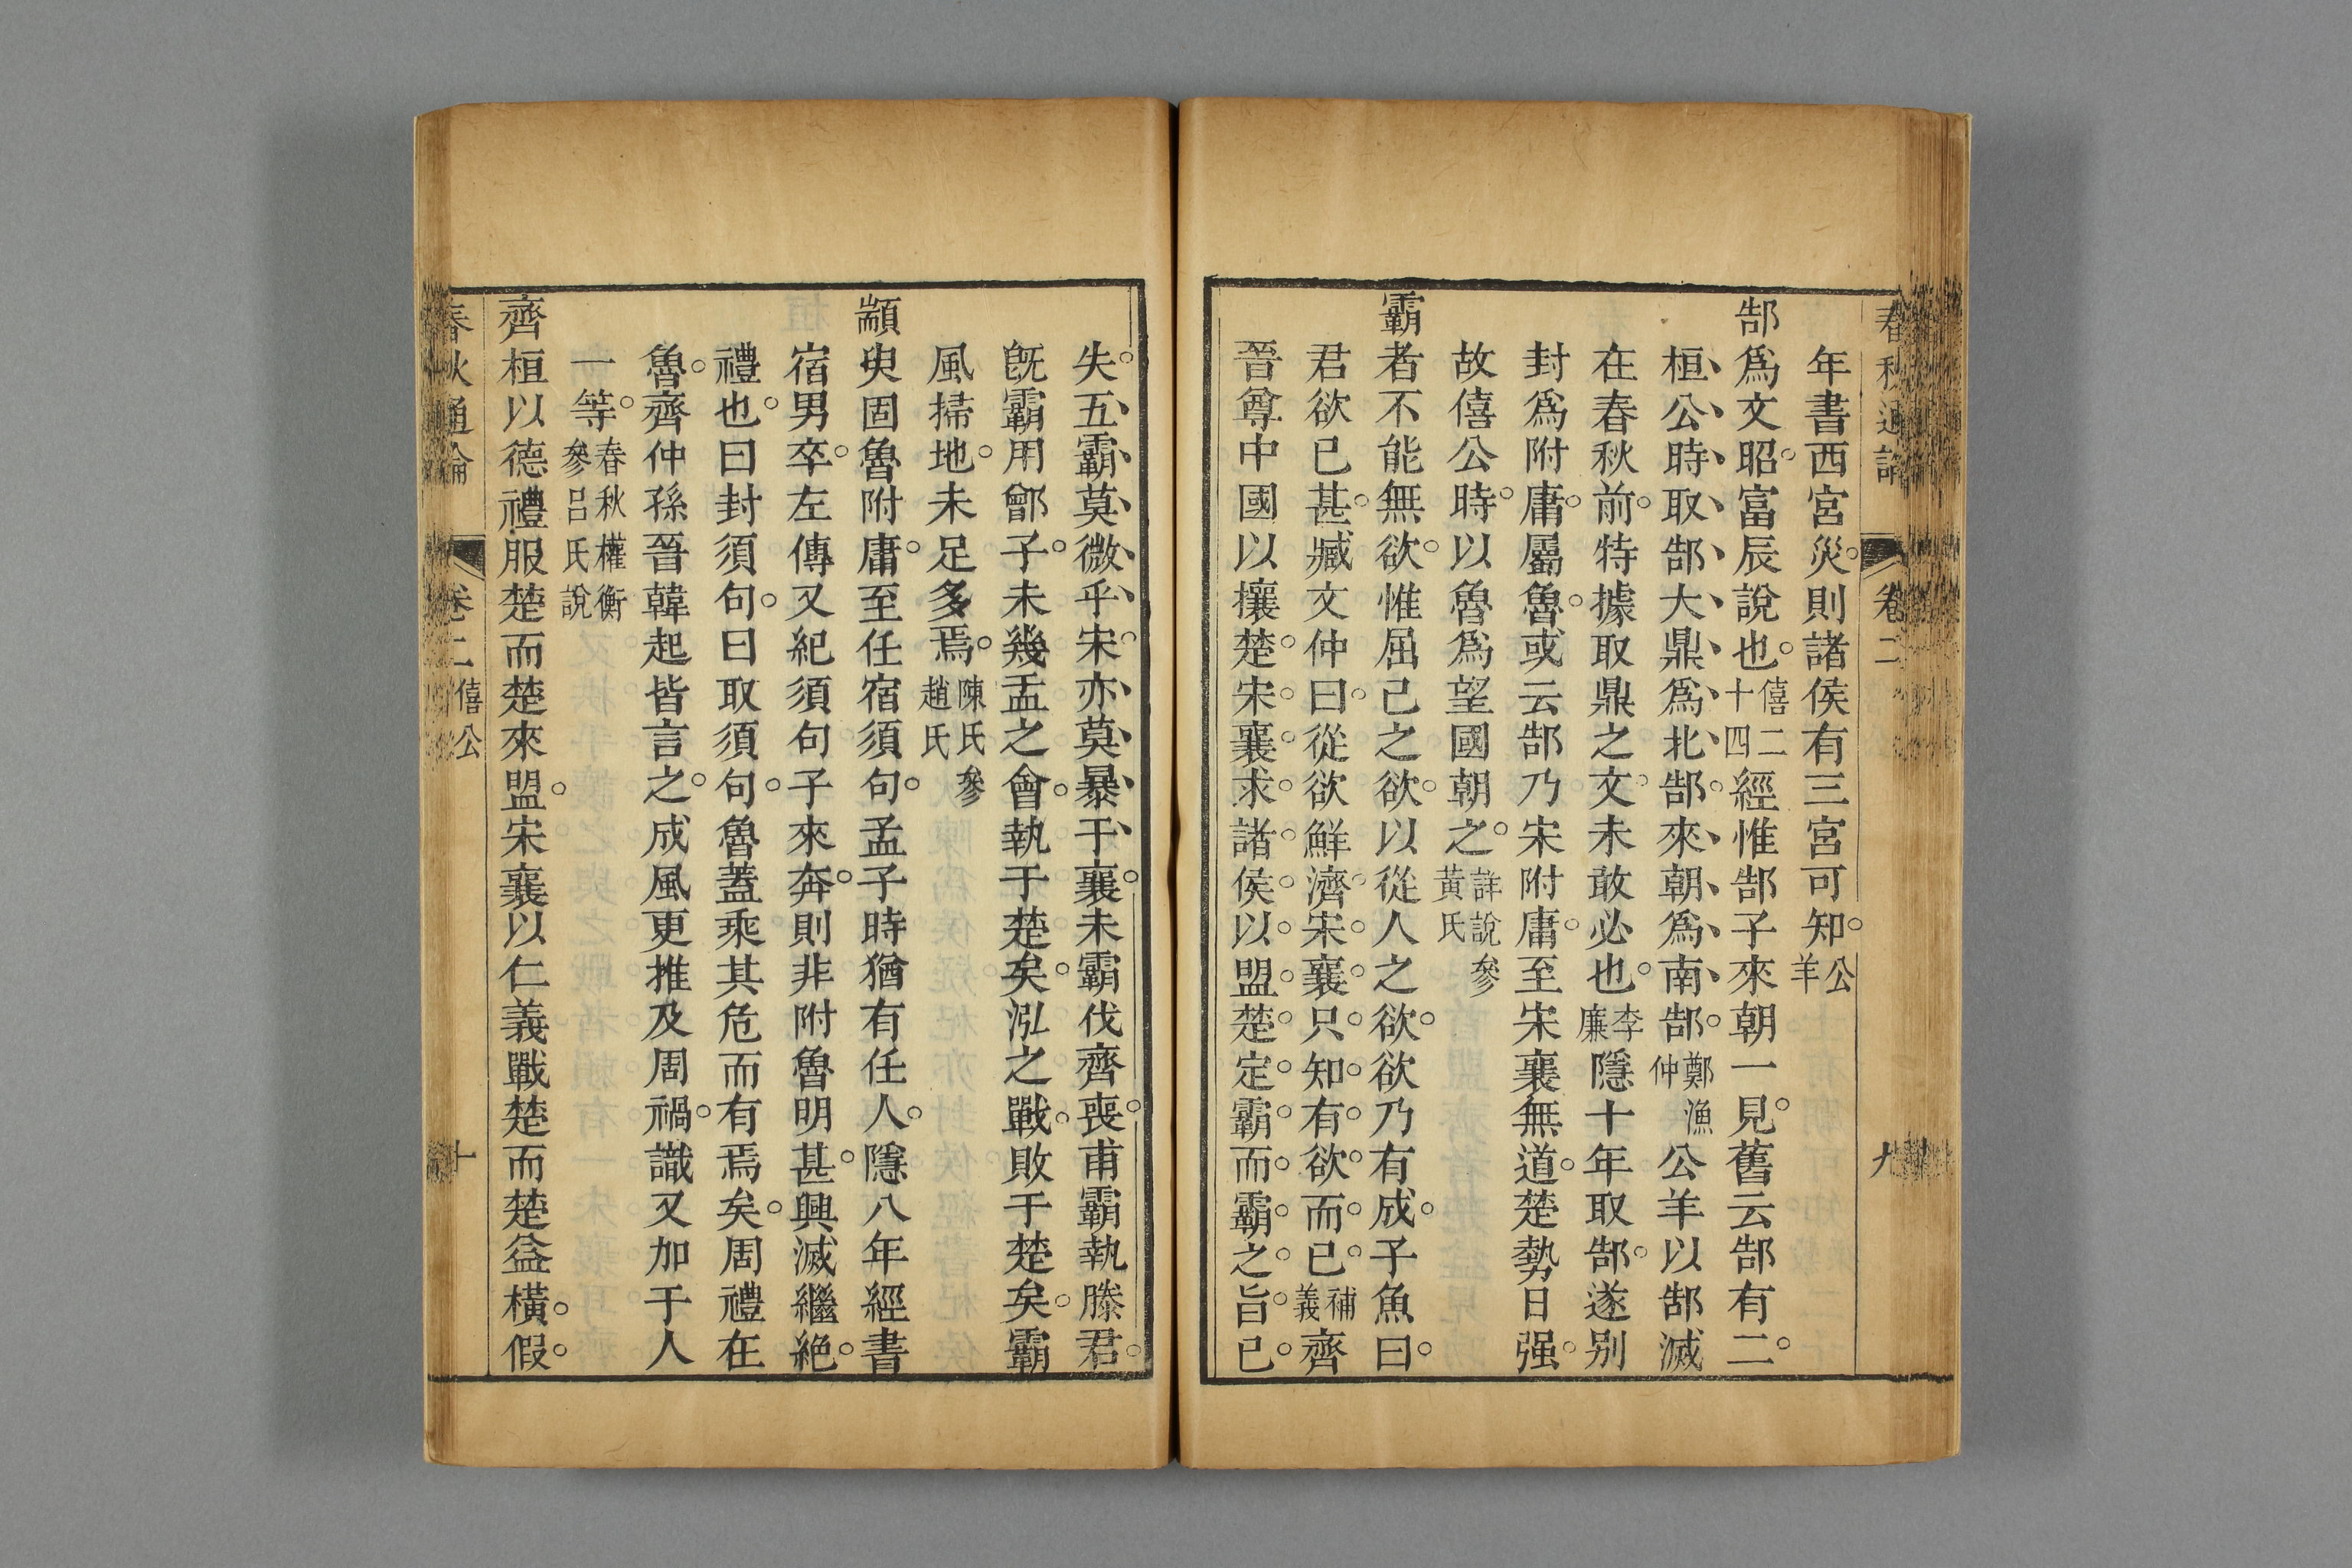 春秋通論　卷二　九
年書西宮災則諸侯有三宮可知公羊
郜爲文昭富辰說也僖二十四經惟郜子來朝一見舊云郜有二
桓公時取郜大鼎爲北郜來朝爲南郜鄭漁仲公羊以郜滅
在春秋前特據取鼎之文未敢必也李廉隱十年取郜遂别
封爲附庸屬魯或云郜乃宋附庸至宋襄無道楚勢日强
故僖公時以魯爲望國朝之詳說參黃氏
霸者不能無欲惟屈己之欲以從人之欲欲乃有成子魚曰
君欲已甚臧文仲曰從欲鮮濟宋襄只知有欲而已補義齊
晉尊中國以攘楚宋襄求諸侯以盟楚定霸而霸之旨已
失五霸莫微乎宋亦莫暴于襄未霸伐齊喪甫霸執滕君
旣霸用鄫子未幾盂之會執于楚矣泓之戰敗于楚矣霸
風掃地未足多焉陳氏參趙氏
顓臾固魯附庸至任宿須句孟子時猶有任人隱八年經書
宿男卒左傳又紀須句子來奔則非附魯明甚興滅繼絶
禮也曰封須句曰取須句魯蓋乘其危而有焉矣周禮在
魯齊仲孫晉韓起皆言之成風更推及周禍識又加于人
一等春秋權衡參呂氏說
齊桓以德禮服楚而楚來盟宋襄以仁義戰楚而楚益橫假
春秋通論　卷二　僖公　十